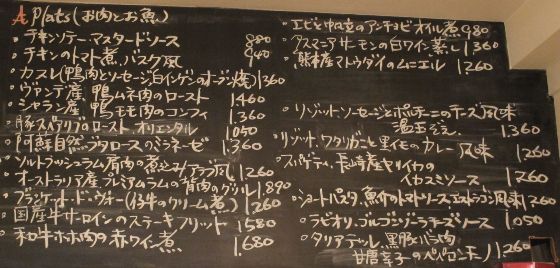 Plats (お肉とお魚)
・チキンソテーマスタードソース 880
・チキンのトマト煮、バスク風 940
・カスレ(鴨肉とソーセージ白インゲンのオーブン焼) 1360
・ヴァンデ産、鴨ムネ肉のロースト 1460
・シャラン産、鴨モモ肉のコンフィ 1,360
・豚スペアリブのロースト オリエンタル 1050
・阿蘇自然ブタロースのミラネーゼ 1,360
・ソルトブッシュラム肩肉の煮込み アラブ風 1,260
・オーストラリア産プレミアムラムの背肉のグリル 1,890
・ブランケット・ドゥ・ヴォー(仔牛のクリーム煮) 1260
・国産牛サーロインのステーキ フリット 1580
・和牛ホホ肉の赤ワイン煮 1,680
・エビと のアンチョビオイル煮 980
・タスマニアサーモンの白ワイン蒸し 1360
・熊本産マトウダイのムニエル 1,260
・リゾット、ソーセージとポルチーニのチーズ風味
温玉そえ 1,360
・リゾット、ワタリガニと黒イモのカレー風味 1260
・スパゲティ、長崎産ヤリイカの
イカスミソース 1260
・ショートパスタ、魚介のトマトソースエストラゴン風味 1260
・ラビオリ、ゴルゴンゾーラチーズソース 1050
・タリアテッレ、黒豚バラ肉
甘唐辛子のペペロンチーノ 1260